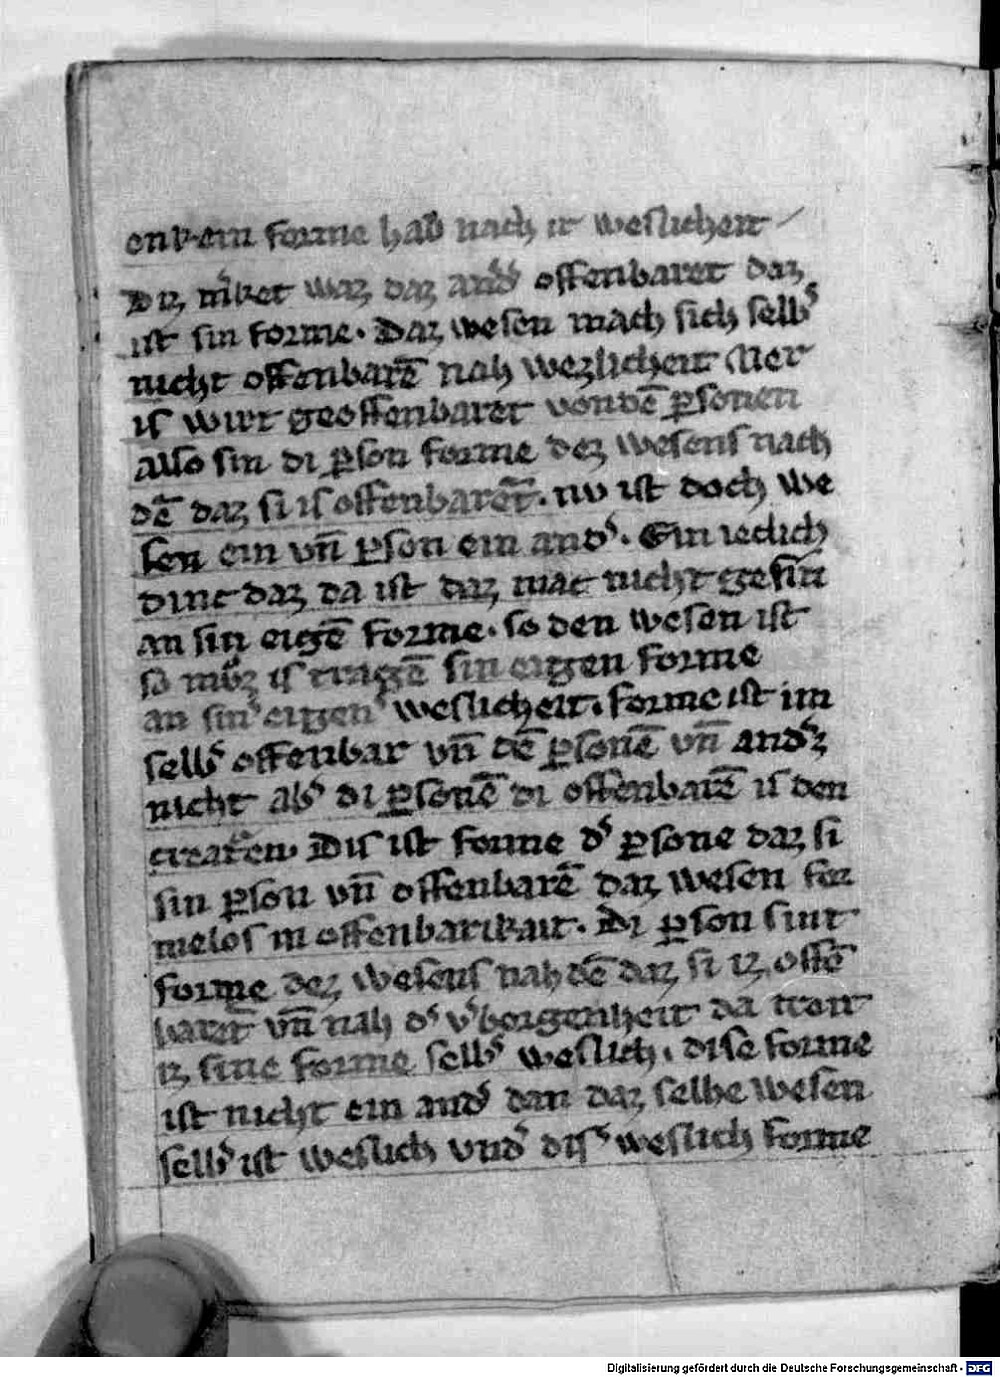 enkein forme hab nach ir weslicheit
Diz mͥket waz daz andͤs offenbaret daz
ist sin forme. Daz wesen mach sich selbˢ
nicht offenbarē nah wezlicheit Mer
is wirt geoffenbaret von dē ꝑsonen
Also sin di ꝑson forme dez wesens nach
dē daz si is offenbarēt. nv ist doch we
sen ein vn̄ ꝑson ein andˢ. Ein ieclich
dinc daz da ist daz mac nicht gesin
an sin eigē forme. so den wesen ist
so mvͦz is tragē sin eigen forme
an sinˢ eigenˢ weslicheit. forme ist im
selbˢ offenbar vn̄ dē ꝑsonē vn̄ andˢz
nicht alsˢ di ꝑsonē di offenbarē is den
creatͦen. Dis ist forme dˢ ꝑsone daz si
sin ꝑson vn̄ offenbarē daz wesen for
melos in offenbarikait. Di ꝑson sint
forme dez wesens nah dē daz si iz offē
barēt vn̄ nah dˢ vˢborgenheit da treit
iz sine forme selbˢ weslich. dise forme
ist nicht ein andˢ dan daz selbe wesen
selbˢ ist weslich vndˢ disˢ weslich forme
Digitalisierung gefördert durch die Deutsche Forschungsgemeinschaft - DFG